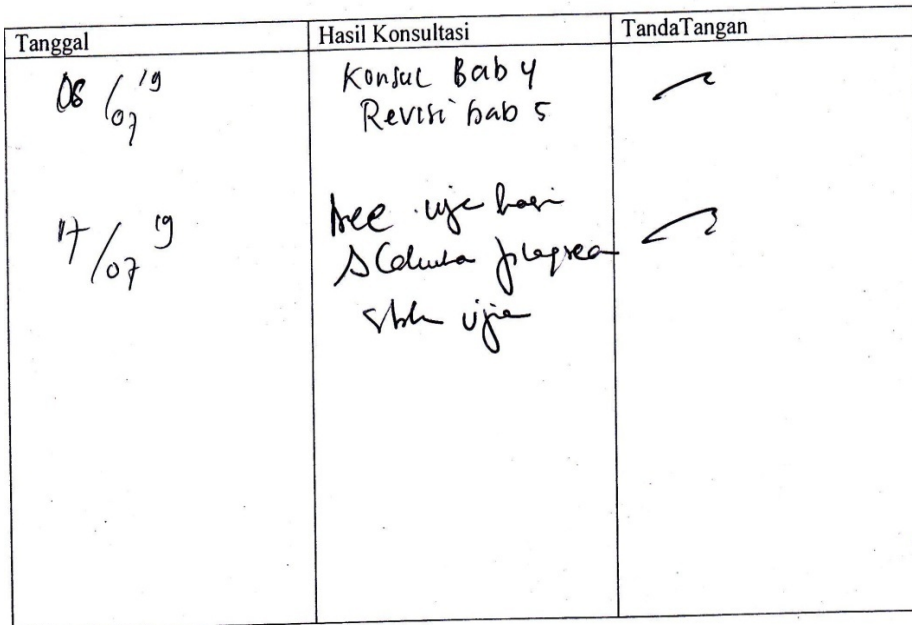 Tanggal Hasil Konsultasi TandaTangan
08/07 19 Konsul Bab 4
Revisi bab 5
17/07 19 Acc uji hasi
sblm ujia